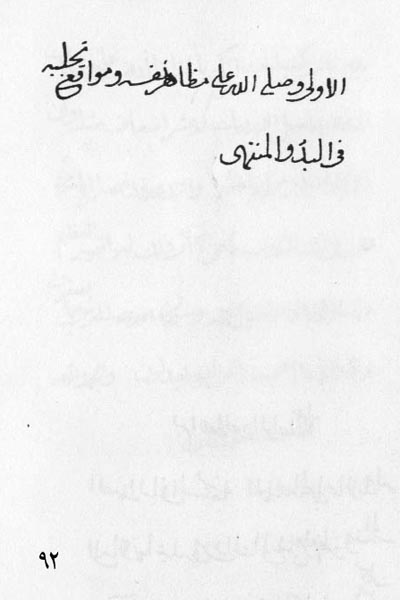 الاولی وصلی الله علی مظاهر نفسه ومواقع تجلیه
فی البدء والمنتهی
۹۲